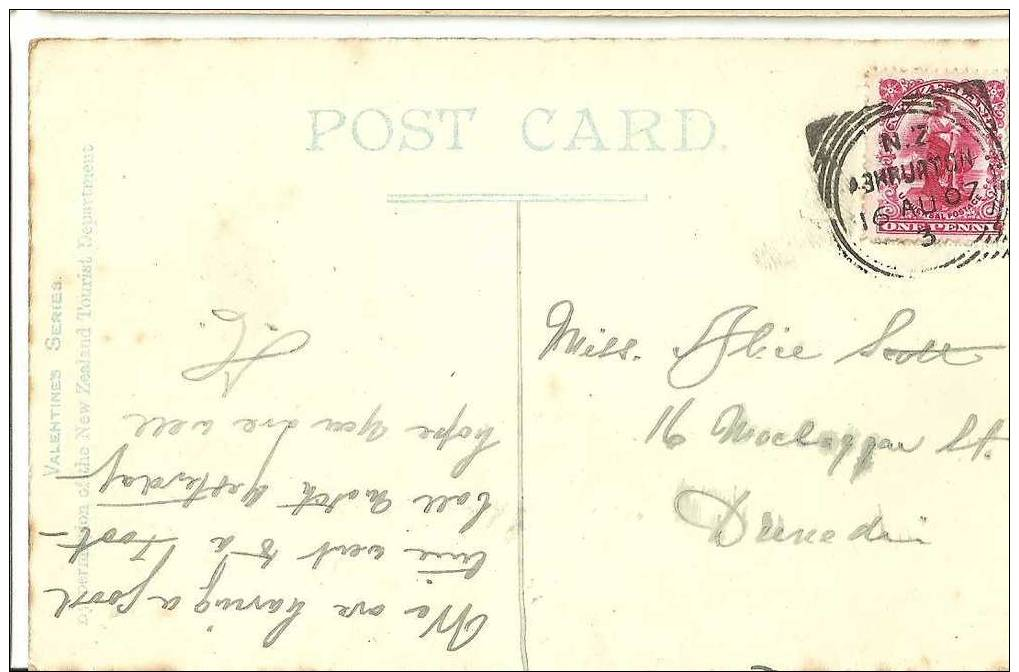 POST CARD.
VALENTINES SERIES.
By permission of the New Zealand Tourist Department
N.Z.
ASHBURTON
16 AU 07
3
ONE PENNY
Miss. Alice Scott
16 Maclaggan St.
Dunedin
We are having a good
time went to a Foot-
ball Match yesterday
hope you are well